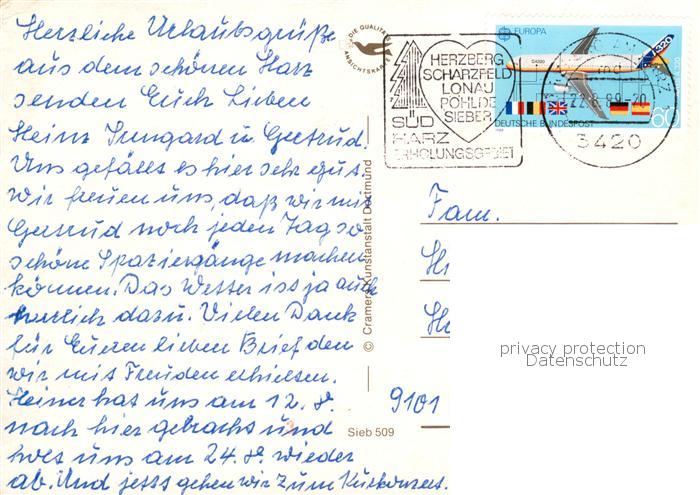 Herzliche Urlaubsgrüße
aus dem schönen Harz
senden Euch Lieben
Heinz Irmgard u. Gertrud.
Uns gefällt es hier sehr gut.
Wir freuen uns, daß wir mit
Gertrud noch jeden Tag so
schöne Spaziergänge machen
können. Das Wetter ist ja auch
herrlich dazu. Vielen Dank
für Eueren lieben Brief den
wir mit Freuden erhielten.
Heiner hat uns am 12. 8.
nach hier gebracht und
holt uns am 24. 8 wieder
ab. Und jetzt gehen wir zum Kurkonzert.
DIE QUALITÄTS
ANSICHTSKARTE
© Cramers Kunstanstalt Dortmund
Sieb 509
HERZBERG
SCHARZFELD
LONAU
PÖHLDE
SIEBER
SÜD
HARZ
ERHOLUNGSGEBIET
EUROPA
A320
DEUTSCHE BUNDESPOST
60
3420
Fam.
9101
privacy protection
Datenschutz